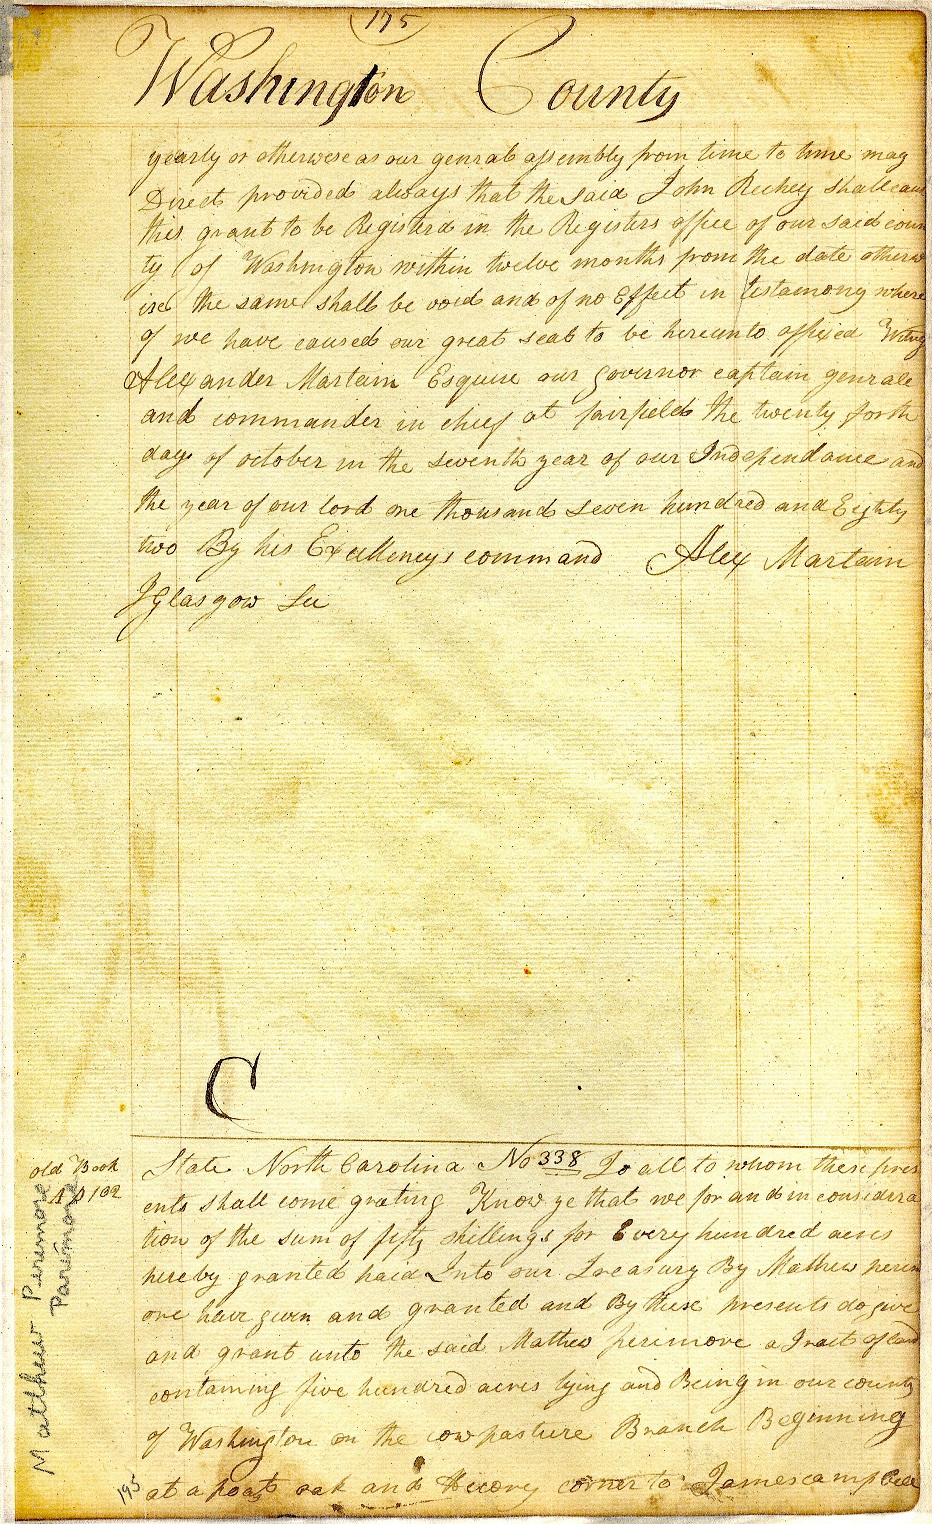 175
Washington County
yearly or otherwese as our genral assembly from time to time may
Direct provided always that the said John Richey shall caus
this grant to be Registerd in the Registers office of our said coun
ty of Washington within twelve months from the date otherw
ise the same shall be void and of no Effect in testamony where
of we have caused our great seal to be hereunto affixed Witness
Alexander Martain Esquire our governor captain genrale
and commander in chief at fairfield the twenty forth
day of october in the seventh year of our Independance and
the year of our lord one thousand seven hundred and Eighty
two By his Excellency s command Alex Martain
J Glasgow Sec
C
State North Carolina No 338 To all to whom these pres
ents shall come grating Know ye that we for and in considera
tion of the sum of fifty shillings for Every hundred acres
hereby granted paid Into our Treasury By Mathew perim
ore have given and granted and By these presents do give
and grant unto the said Mathew perimore a Tract of land
containing five hundred acres lying and Being in our county
of Washington on the cowpasture Branch Beginning
at a poast oak and Hicory corner to James campbell
old Book
A p 102
Matthew Perimore
Parimore
195